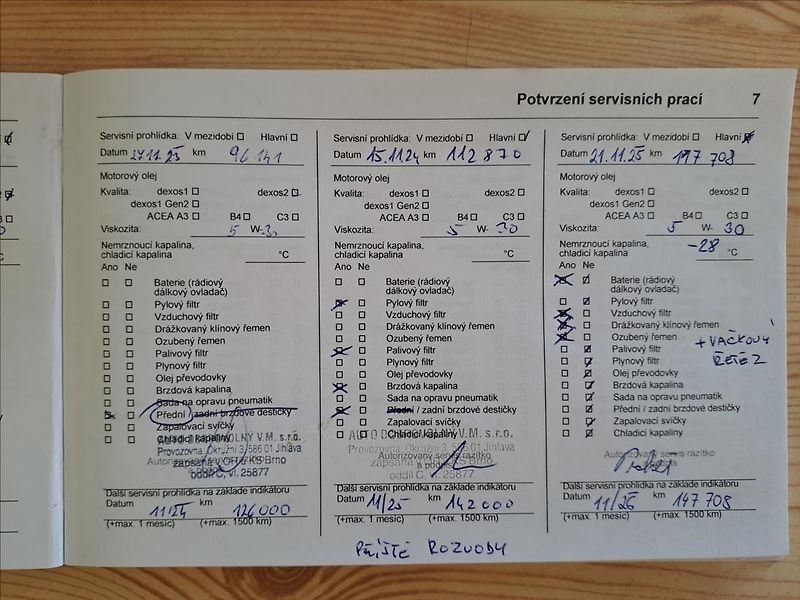 Potvrzení servisních prací 7
Servisní prohlídka: V mezidobí Hlavní
Datum 27.11.25 km 96 141
Motorový olej
Kvalita: dexos1 dexos2
dexos1 Gen2
ACEA A3 B4 C3
Viskozita: 5 W-30
Nemrznoucí kapalina,
chladicí kapalina °C
Ano Ne
Baterie (rádiový
dálkový ovladač)
Pylový filtr
Vzduchový filtr
Drážkovaný klínový řemen
Ozubený řemen
Palivový filtr
Plynový filtr
Olej převodovky
Brzdová kapalina
Sada na opravu pneumatik
Přední / zadní brzdové destičky
Zapalovací svíčky
Chladicí kapaliny
V.M. s.r.o.
Provozovna: Okružní 3, 586 01 Jihlava
zapsána KS Brno
oddíl C, vl. 25877
Další servisní prohlídka na základě indikátoru
Datum 11/24 km 126 000
(+max. 1 měsíc) (+max. 1500 km)
Servisní prohlídka: V mezidobí Hlavní
Datum 15.11.24 km 112 870
Motorový olej
Kvalita: dexos1 dexos2
dexos1 Gen2
ACEA A3 B4 C3
Viskozita: 5 W-30
Nemrznoucí kapalina,
chladicí kapalina °C
Ano Ne
Baterie (rádiový
dálkový ovladač)
Pylový filtr
Vzduchový filtr
Drážkovaný klínový řemen
Ozubený řemen
Palivový filtr
Plynový filtr
Olej převodovky
Brzdová kapalina
Sada na opravu pneumatik
Přední / zadní brzdové destičky
Zapalovací svíčky
Chladicí kapaliny
V.M. s.r.o.
Provozovna: Okružní 3, 586 01 Jihlava
Autorizovaný servis razítko
zapsána Brno
oddíl C, 25877
Další servisní prohlídka na základě indikátoru
Datum 11/25 km 142 000
(+max. 1 měsíc) (+max. 1500 km)
PŘÍŠTĚ ROZVODY
Servisní prohlídka: V mezidobí Hlavní
Datum 21.11.25 km 117 708
Motorový olej
Kvalita: dexos1 dexos2
dexos1 Gen2
ACEA A3 B4 C3
Viskozita: 5 W-30
Nemrznoucí kapalina,
chladicí kapalina -28 °C
Ano Ne
Baterie (rádiový
dálkový ovladač)
Pylový filtr
Vzduchový filtr
Drážkovaný klínový řemen
Ozubený řemen + VAČKOVÝ
Palivový filtr ŘETĚZ
Plynový filtr
Olej převodovky
Brzdová kapalina
Sada na opravu pneumatik
Přední / zadní brzdové destičky
Zapalovací svíčky
Chladicí kapaliny
Autorizovaný servis razítko
Další servisní prohlídka na základě indikátoru
Datum 11/26 km 147 708
(+max. 1 měsíc) (+max. 1500 km)